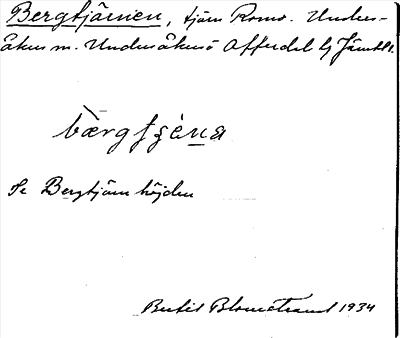 Bergtjärnen, tjärn Romo. Unders-
åkers sn. Undersåkers Offerdal tg Jämtl.
bærgtʂèna
Se Bergtjärnhöjden
Bertil Blomstrand 1934